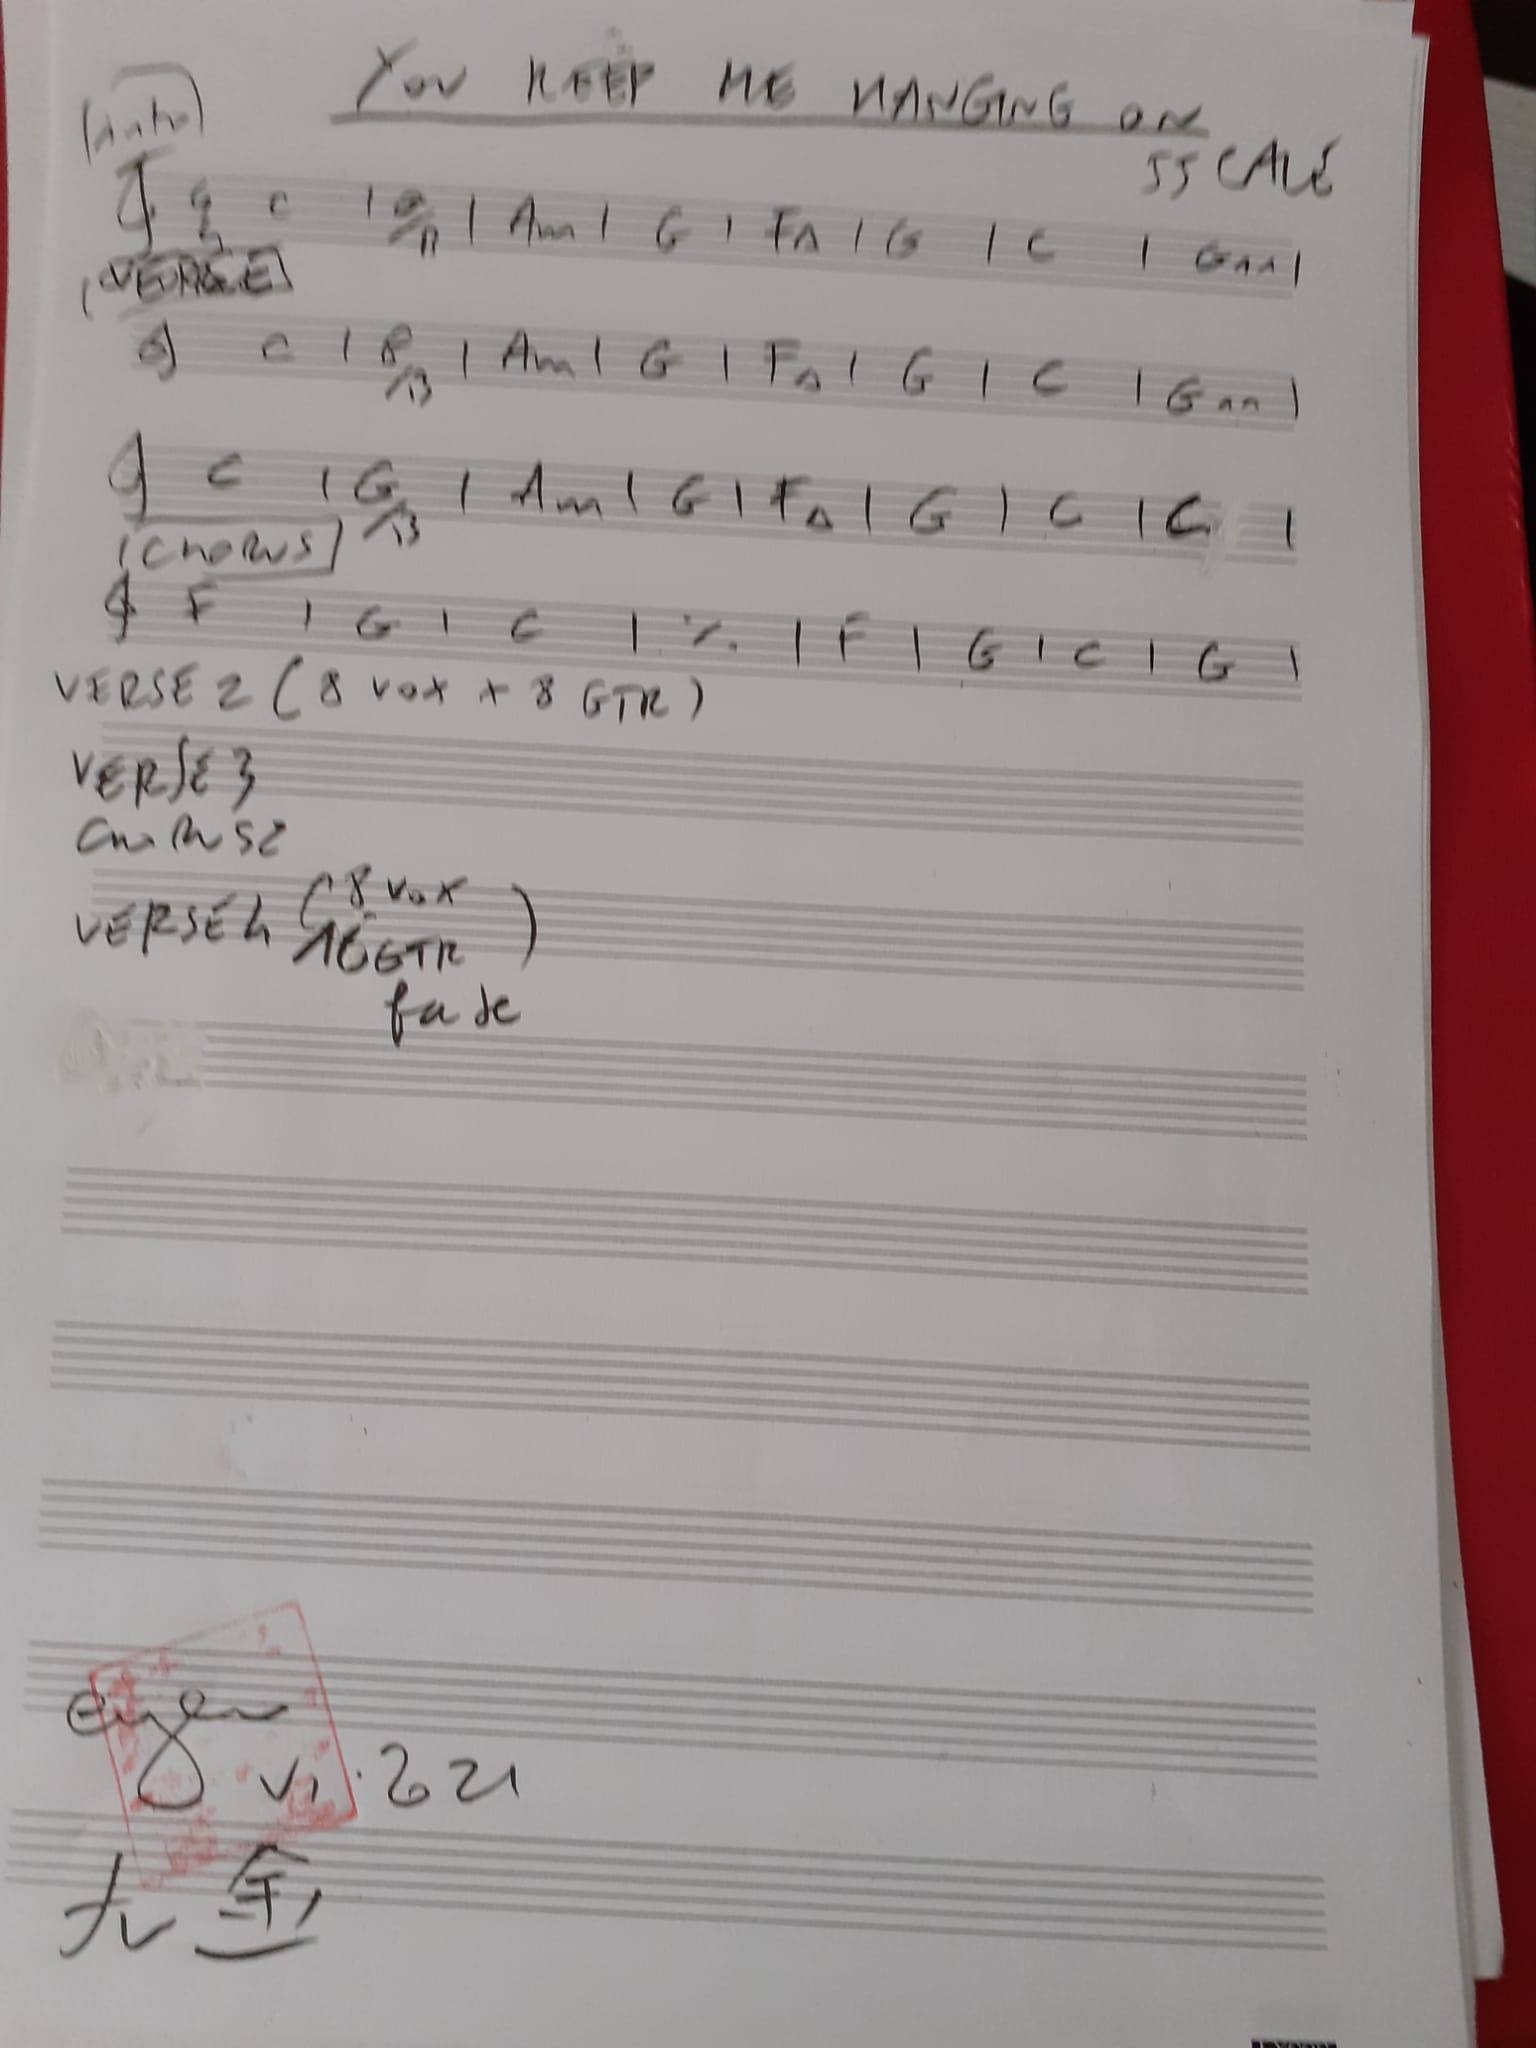 YOU KEEP ME HANGING ON
intro
JJ CALE
4 C | G/B | Am | G | F∆ | G | C | G11 |
VERSE
C | G/B | Am | G | F∆ | G | C | G11 |
C | G/B | Am | G | F∆ | G | C | C |
CHORUS
F | G | C | ٪ | F | G | C | G |
VERSE 2 ( 8 VOX + 8 GTR )
VERSE 3
CHORUS 2
VERSE 4 ( 8 VOX
16 GTR )
fade
VI . 221